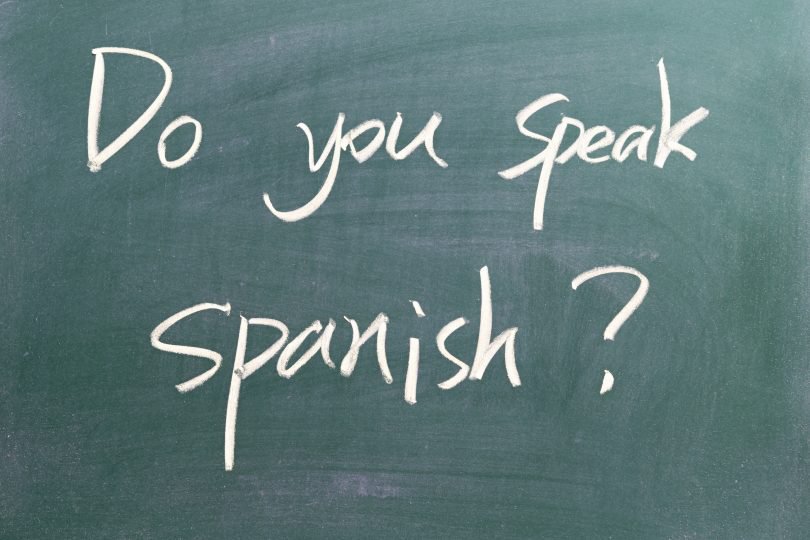 Do you speak
spanish?